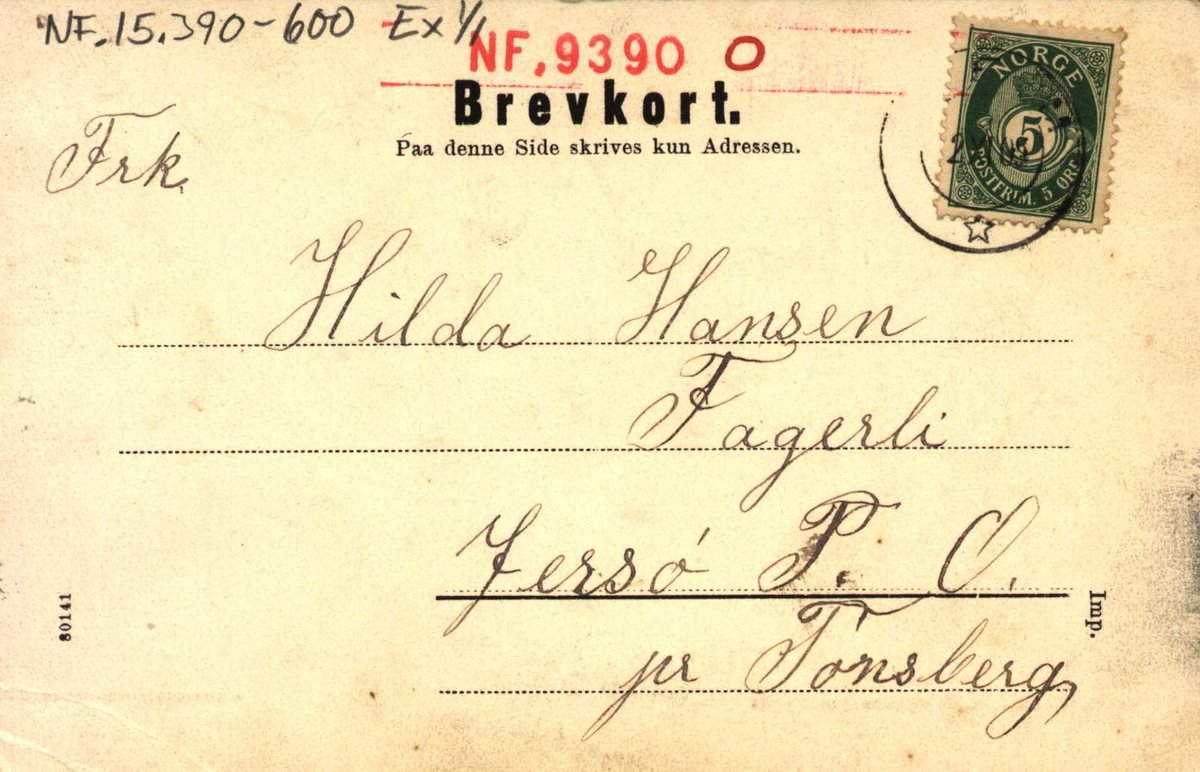 NF.15.390-600 Ex 1/1
NF.9390 O
Brevkort.
Paa denne Side skrives kun Adressen.
NORGE
5
POSTFRIM. 5 ØRE
Frk.
Hilda Hansen
Fagerli
Jersó P. O.
pr Tönsberg
80141
Imp.